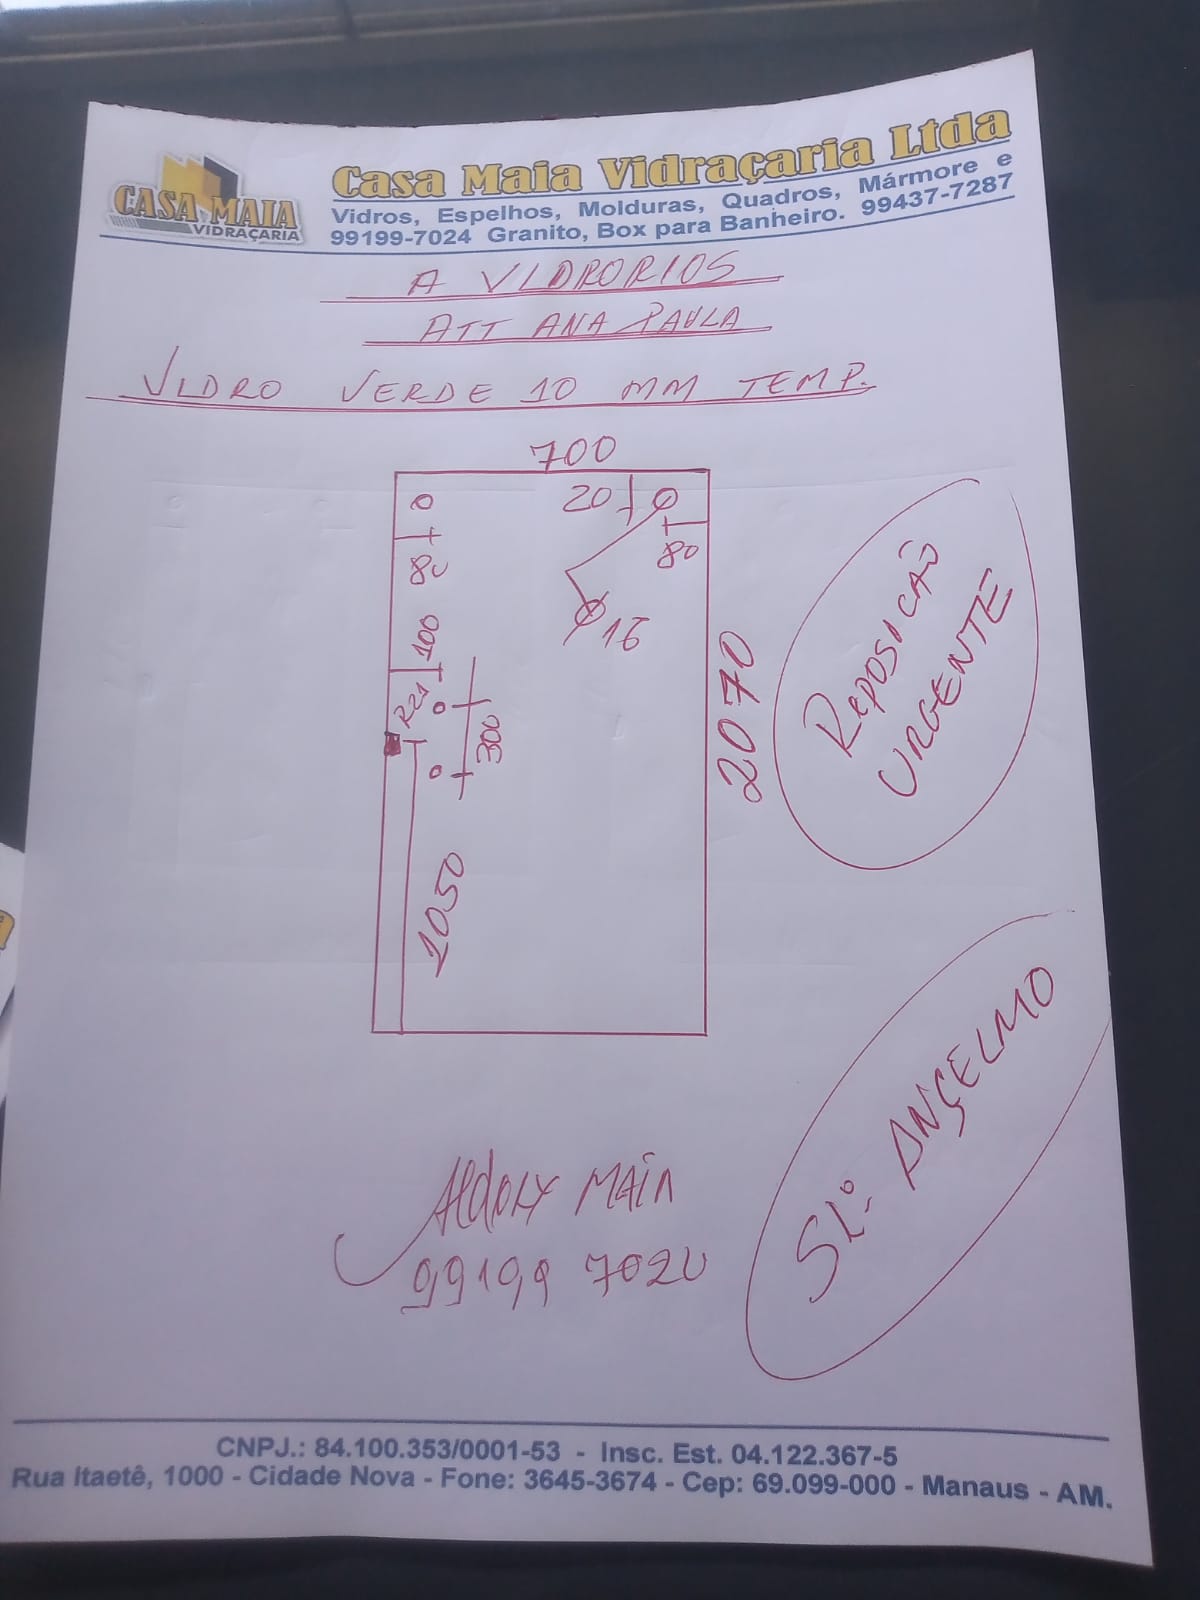 CASA MAIA
VIDRAÇARIA
Casa Maia Vidraçaria Ltda
Vidros, Espelhos, Molduras, Quadros, Mármore e
99199-7024 Granito, Box para Banheiro. 99437-7287
A VIDRORIOS
ATT ANA PAULA
VIDRO VERDE 10 MM TEMP.
700
20
80
80
16
100
R21
300
2070
1050
REPOSICÃO
URGENTE
ANÇELMO
MAIA
99199 7024
CNPJ.: 84.100.353/0001-53 - Insc. Est. 04.122.367-5
Rua Itaetê, 1000 - Cidade Nova - Fone: 3645-3674 - Cep: 69.099-000 - Manaus - AM.